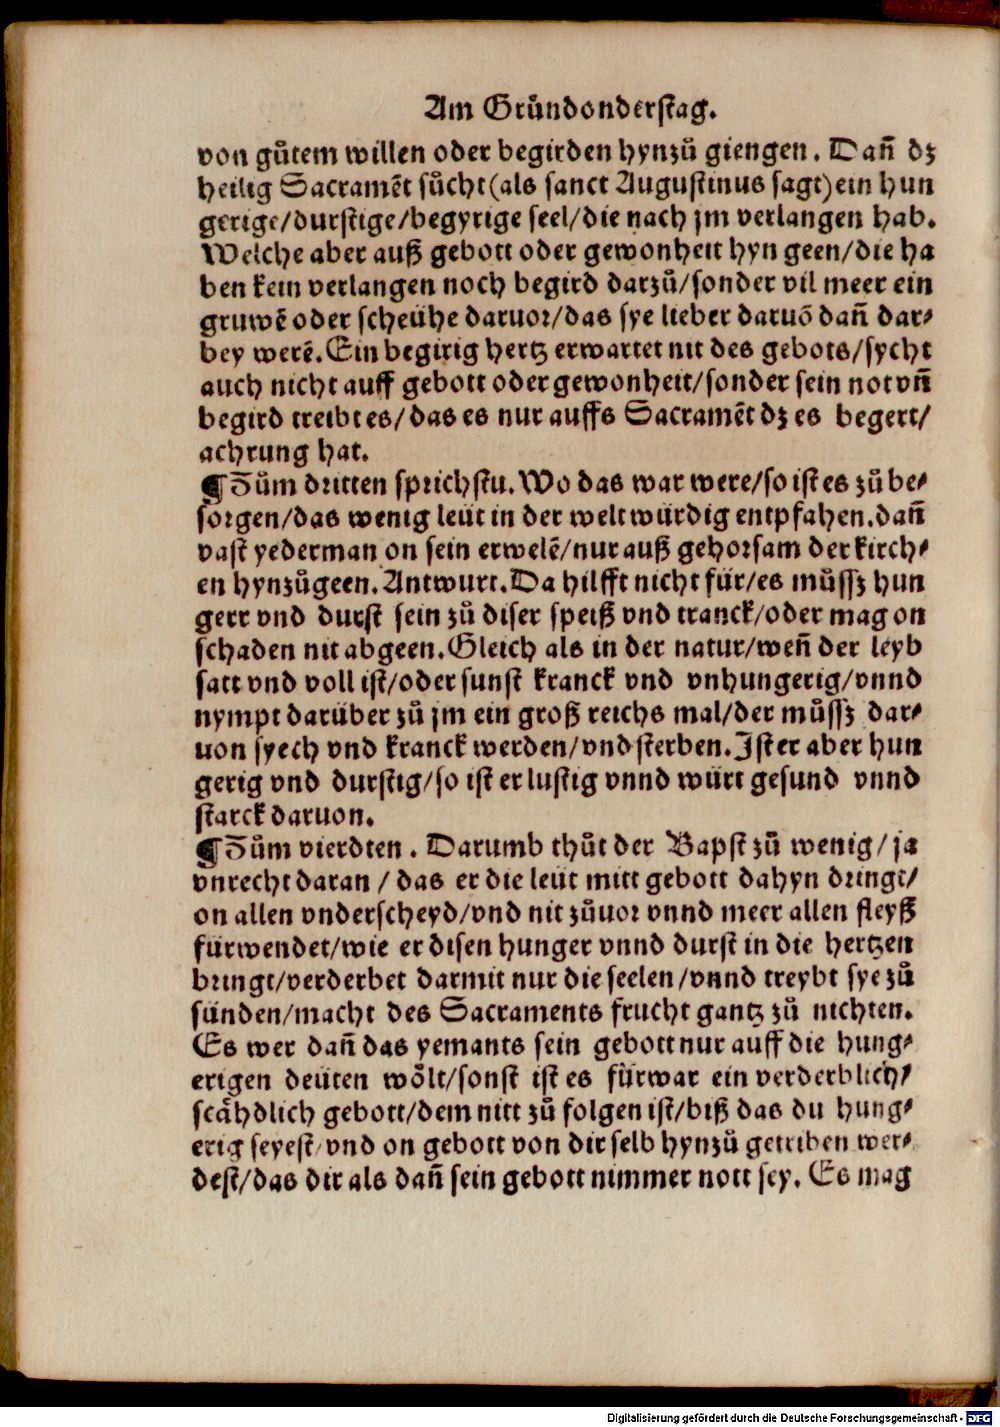 Am Grůndonderstag.
von gůtem willen oder begirden hynzů giengen. Dañ dz
heilig Sacramẽt sůcht(als sanct Augustinus sagt)ein hun
gerige/durstige/begyrige seel/die nach jm verlangen hab.
Welche aber auß gebott oder gewonheit hyn geen/die ha
ben kein verlangen noch begird darzů/sonder vil meer ein
gruwẽ oder scheühe daruor/das sye lieber daruõ dañ dar⸗
bey werẽ. Ein begirig hertz erwartet nit des gebots/sycht
auch nicht auff gebott oder gewonheit/sonder sein not vñ
begird treibt es/das es nur auffs Sacramẽt dz es begert/
achtung hat.
¶Zům dritten sprichstu. Wo das war were/so ist es zů be⸗
sorgen/das wenig leüt in der welt würdig entpfahen. dañ
vast yederman on sein erwelẽ/nur auß gehorsam der kirch⸗
en hynzůgeen. Antwurt. Da hilfft nicht für/es můssz hun
gert vnd durst sein zů diser speiß vnd tranck/oder mag on
schaden nit abgeen. Gleich als in der natur/weñ der leyb
satt vnd voll ist/oder sunst kranck vnd vnhungerig/vnnd
nympt darüber zů jm ein groß reichs mal/der můssz dar⸗
uon syech vnd kranck werden/vnd sterben. Ist er aber hun
gerig vnd durstig/so ist er lustig vnnd würt gesund vnnd
starck daruon.
¶Zům vierdten. Darumb thůt der Bapst zů wenig/ja
vnrecht daran/das er die leüt mitt gebott dahyn dringt/
on allen vnderscheyd/vnd nit zůuor vnnd meer allen fleyß
fürwendet/wie er disen hunger vnnd durst in die hertzen
bringt/verderbet darmit nur die seelen/vnnd treybt sye zů
sünden/macht des Sacraments frucht gantz zů nichten.
Es wer dañ das yemants sein gebott nur auff die hung⸗
erigen deüten wölt/sonst ist es fürwar ein verderblich⸗
scähdlich gebott/dem nitt zů folgen ist/biß das du hung⸗
erig seyest/vnd on gebott von dir selb hynzů getriben wer⸗
dest/das dir als dañ sein gebott nimmer nott sey. Es mag
Digitalisierung gefördert durch die Deutsche Forschungsgemeinschaft - DFG